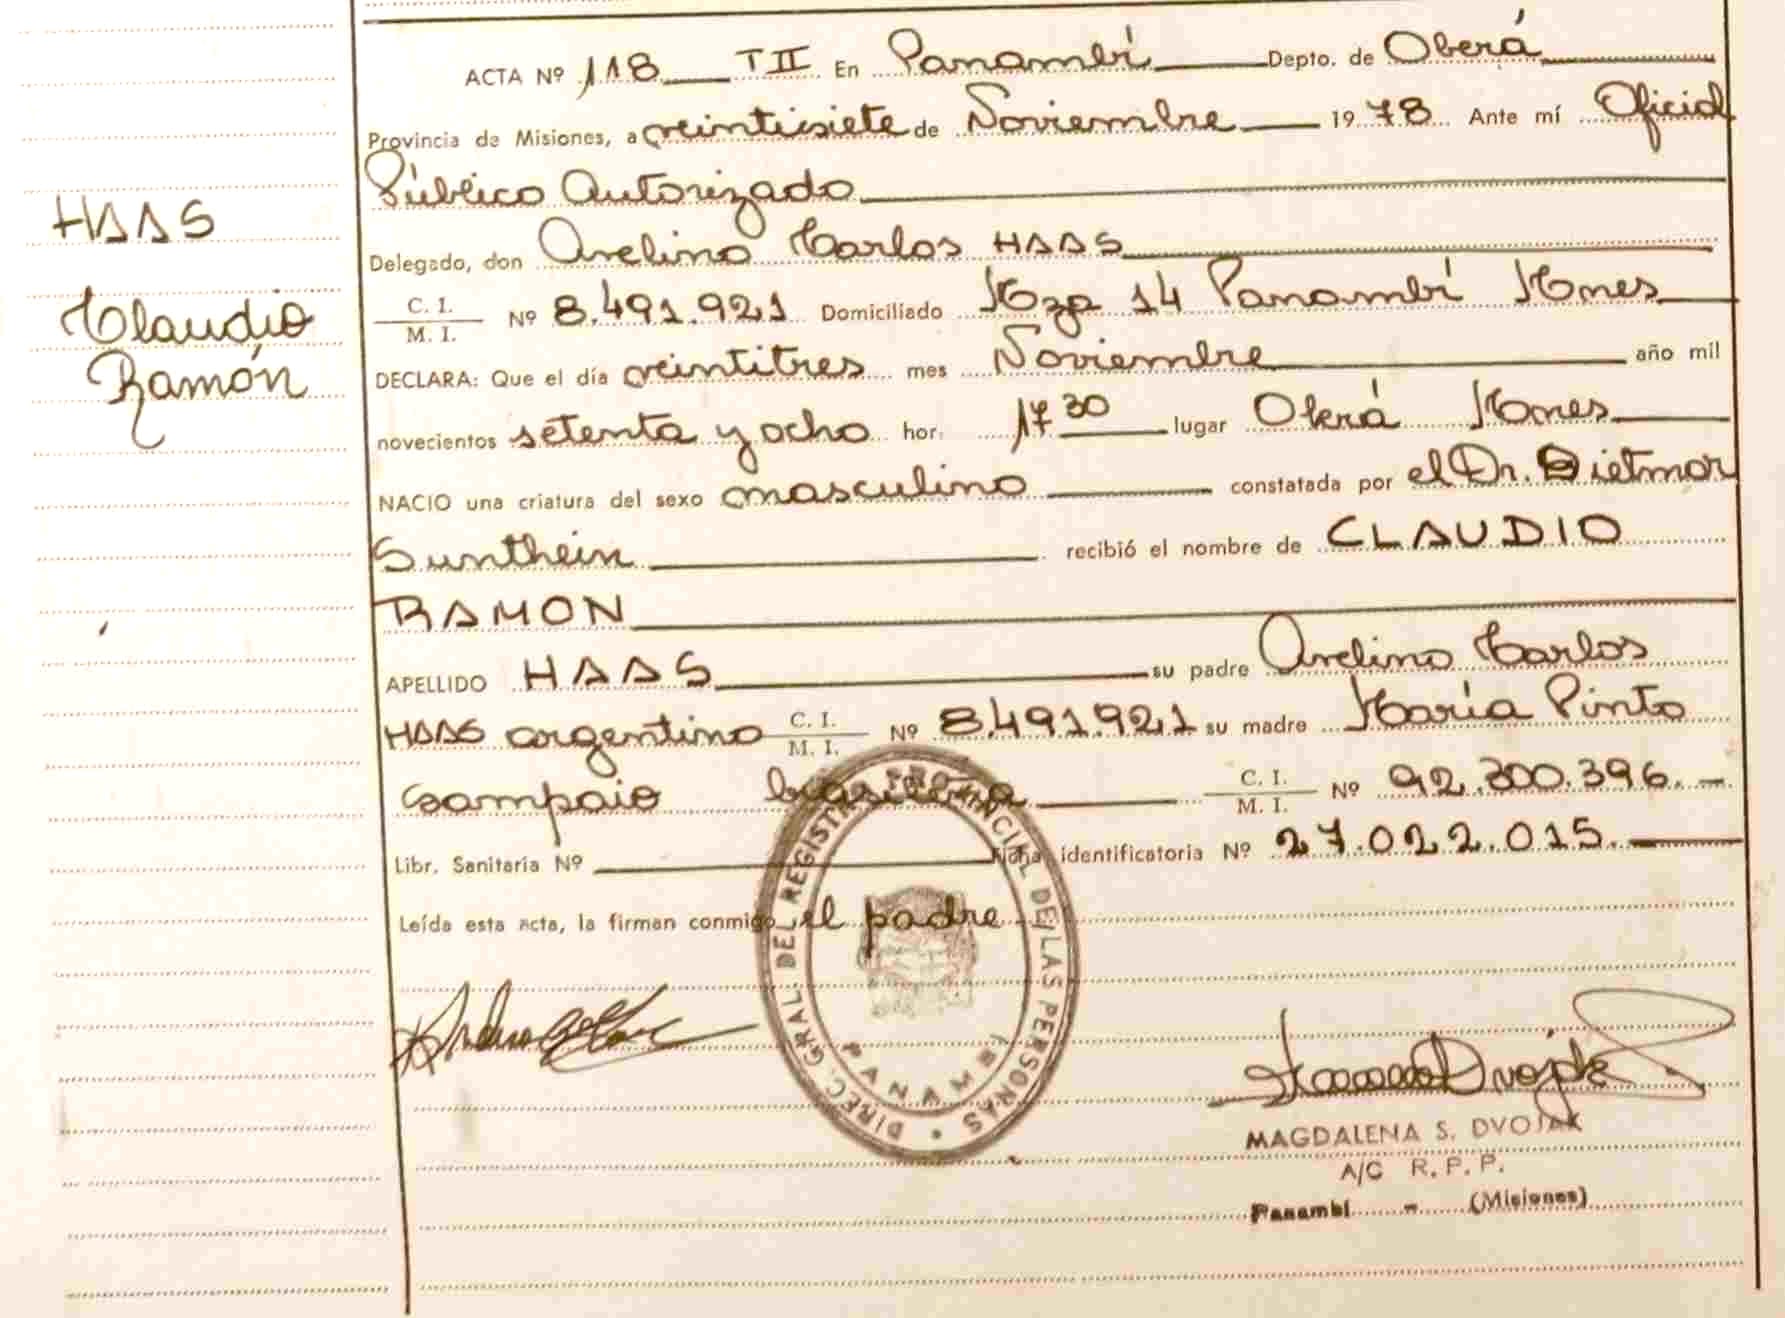 HAAS
Claudio
Ramón
ACTA Nº 118 TII En Panambí Depto. de Oberá
Provincia de Misiones, a veintisiete de Noviembre 1978 Ante mí Oficial
Público Autorizado
Delegado, don Avelino Carlos HAAS
C. I.
M. I. Nº 8.491.921 Domiciliado Mza 14 Panambí Mnes
DECLARA: Que el día veintitres mes Noviembre año mil
novecientos setenta y ocho hor. 17 30 lugar Oberá Mnes
NACIO una criatura del sexo masculino constatada por el Dr. Dietmar
Sunthein recibió el nombre de CLAUDIO
RAMON
APELLIDO HAAS su padre Avelino Carlos
HAAS argentino C. I.
M. I. Nº 8.491.921 su madre María Pinto
Sampaio brasilera C. I.
M. I. Nº 92.300.396.-
Libr. Sanitaria Nº Ficha identificatoria Nº 27.022.015.
Leída esta acta, la firman conmigo el padre
DIREC. GRAL. DEL REGISTRO PROVINCIAL DE LAS PERSONAS
PANAMBI
MAGDALENA S. DVOJAK
A/C R. P. P.
Panambí - (Misiones)